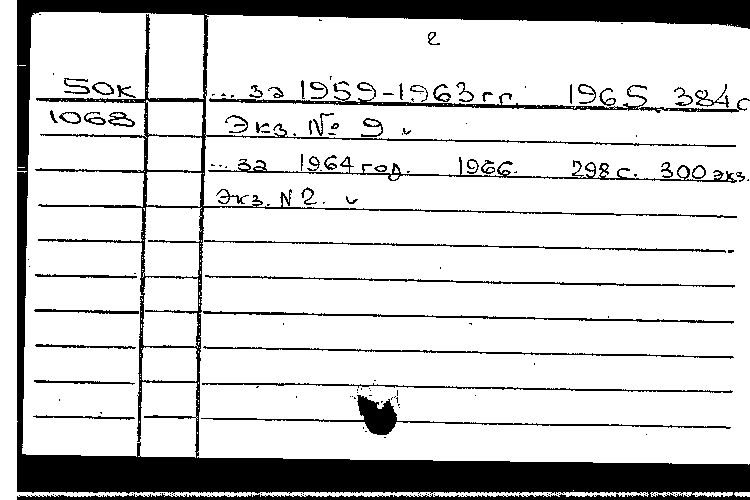 2
50к ... за 1959-1963гг. 1965. 384с
1068 Экз. № 9
... за 1964год. 1966. 298с. 300экз.
Экз. N2.